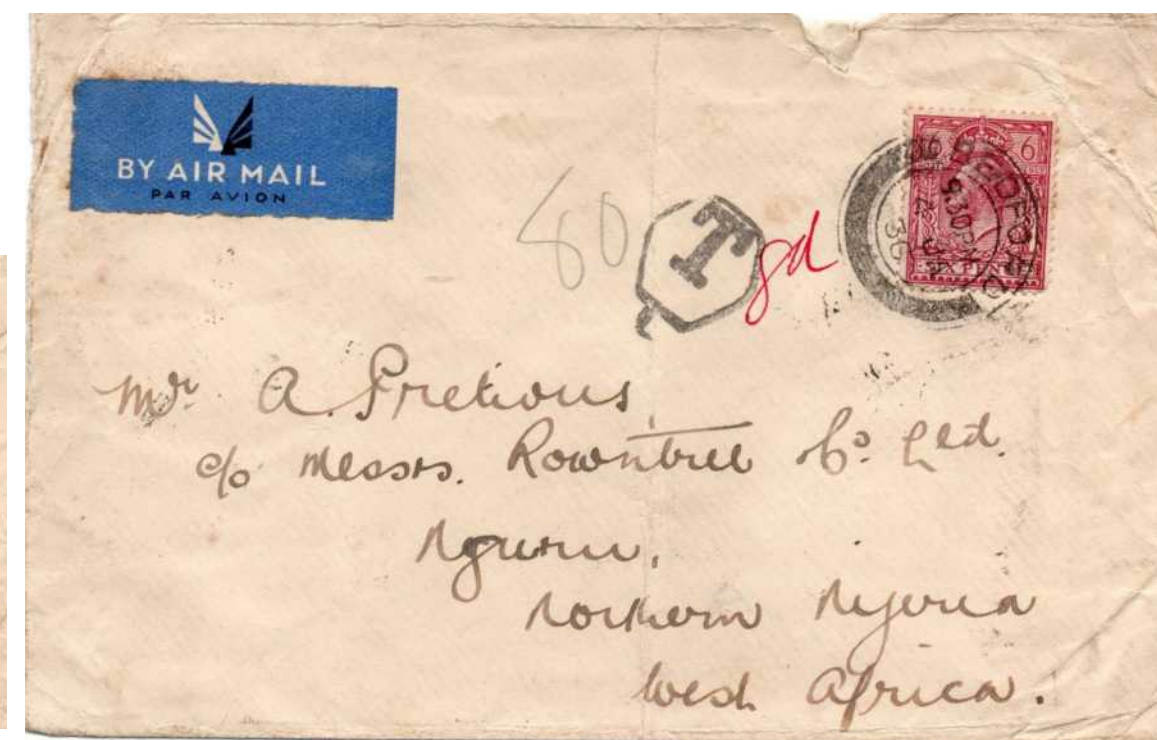 BY AIR MAIL
PAR AVION
80
T
8d
6 6
BEDFORD
9.30 PM
2 JA
36
Mr. A. Pretious,
c/o Messrs. Rowntree Co. Ltd.
Nguru,
Northern Nigeria
West Africa.